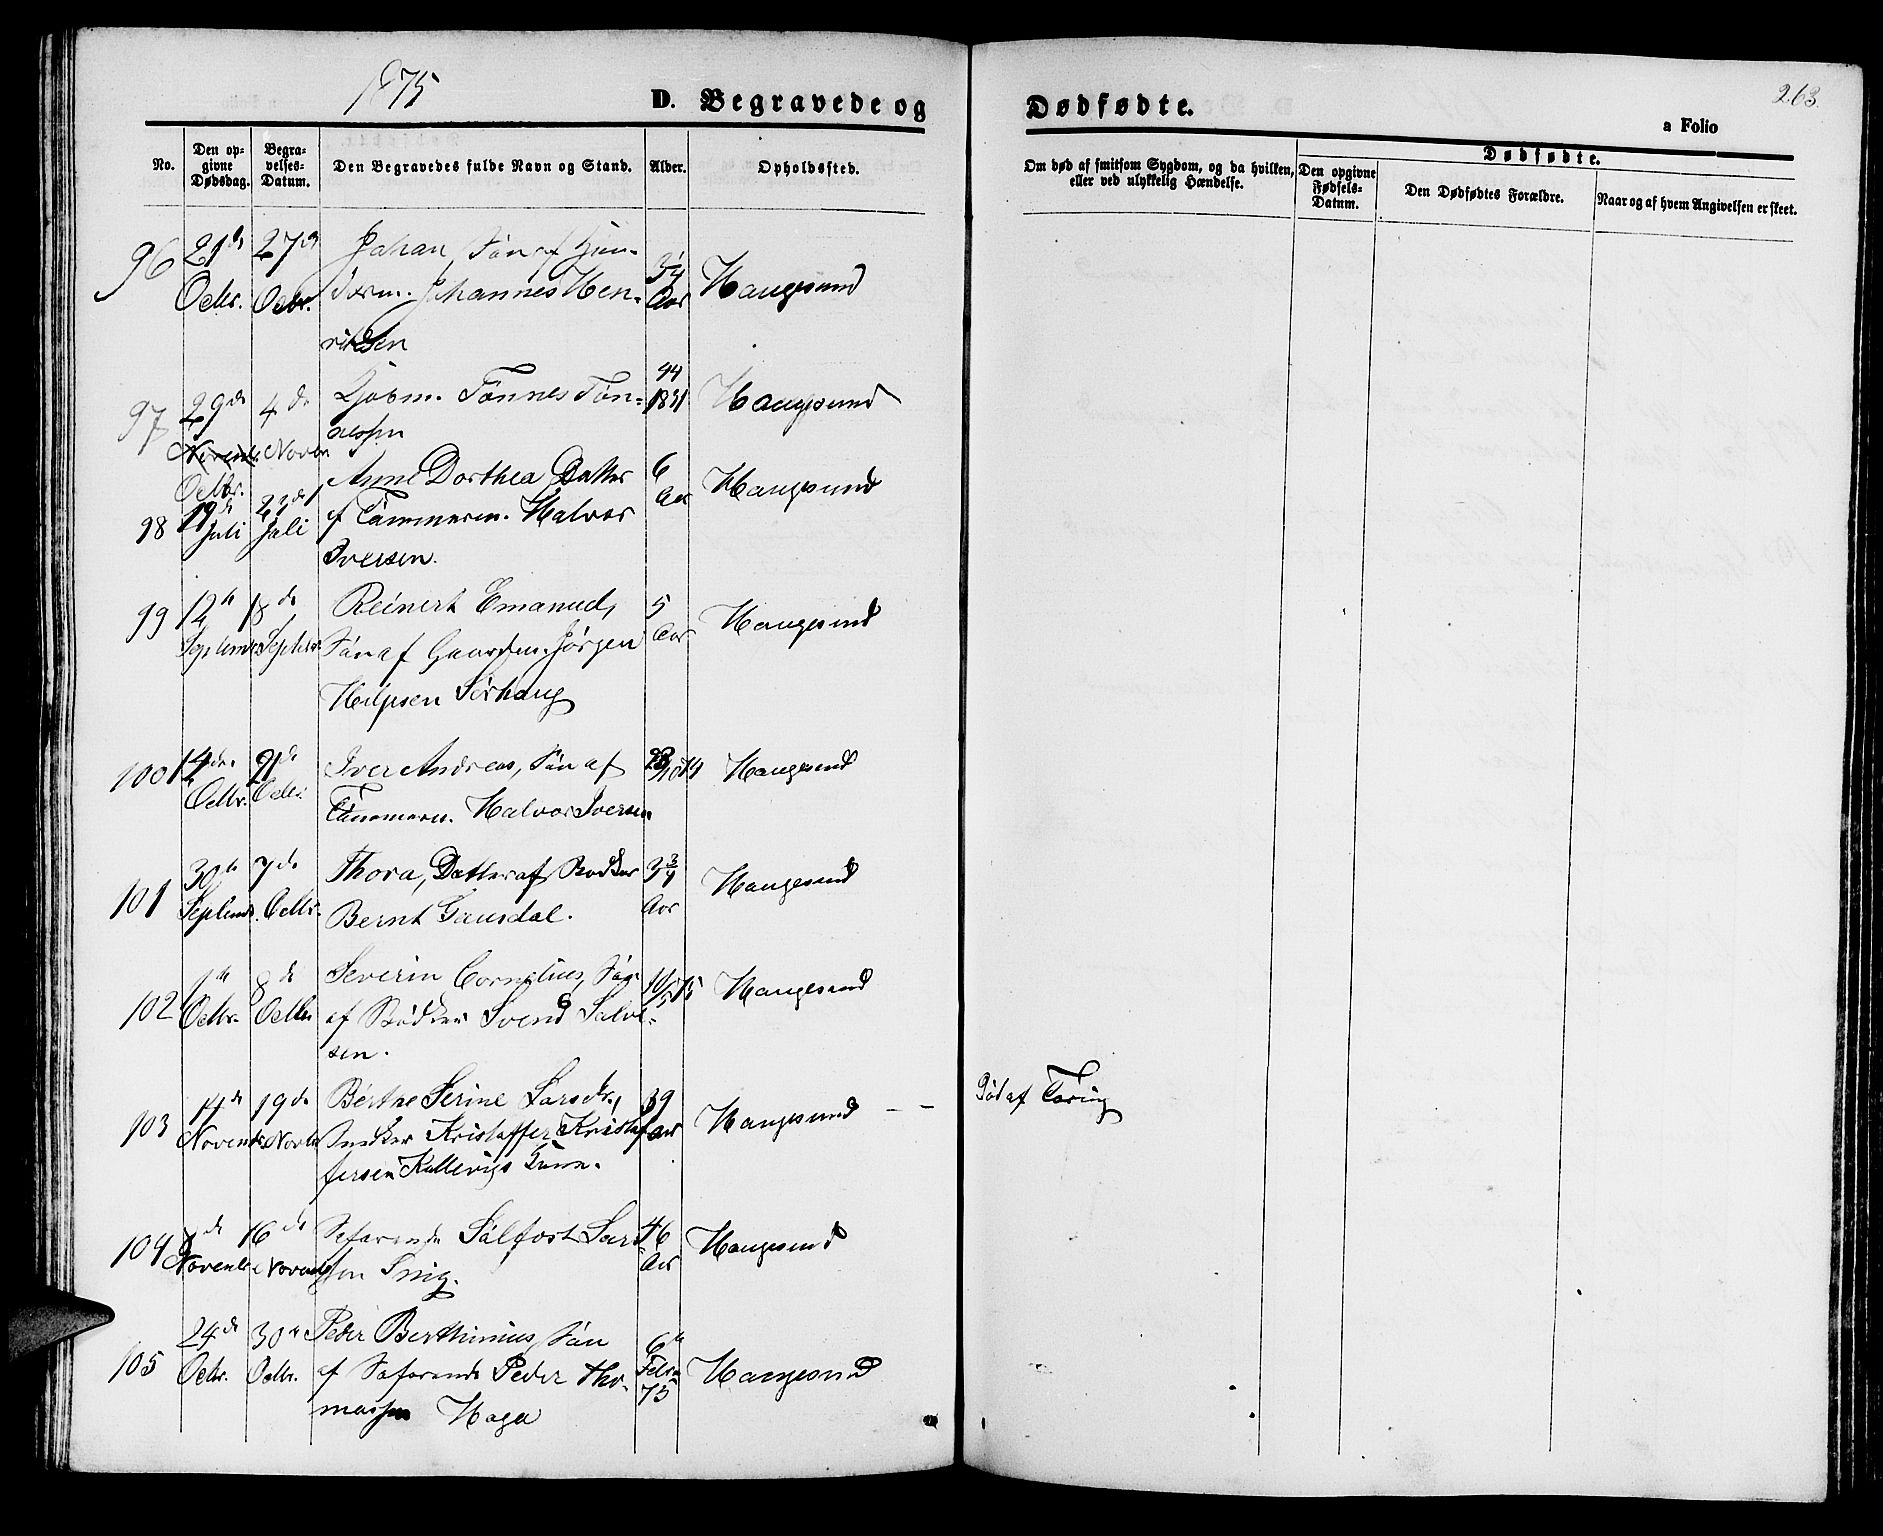 1875
D. Begravede og
No.
Den op-
givne
Dødsdag.
Begra-
velses-
Datum.
Den Begravedes fulde Navn og Stand.
Alder.
Opholdssted.
96 21de 27de Johan, Søn af
Octbr. Octbr. Johannes Hen- 3¼ Aar Haugesund
riksen
97 29de 4de Tønnes Tøn- 1831 Haugesund
nessen
Novembr. Novbr
Octbr.
98 19de Juli 23de Juli Anne Dorthea Datter 6 Aar Haugesund
af Tømmerm. Halvor
Iversen.
99 12te 18de Reinert Emanuel, 5 Aar Haugesund
Septembr Septbr. Søn af Gaardm. Jørgen
Helgesen Sørhaug
100 14de 21de Iver Andreas, Søn af Haugesund
Octbr. Octbr. Tømmerm. Halvor Iversen
101 30te 7de Thora, Datter af Bødker 3¾ Haugesund
Septembr. Octbr. Bernt Gausdal. Aar
102 1te 8de Severin Cornelius, Søn 10/5 75 Haugesund
Octbr. Octbr af Bødker Svend Salve-
sen.
103 14de 19de Berthe Serine Larsdtr., 39 Haugesund – –
Novembr. Novbr Snedker Kristoffer Kristof- Aar
fersen Kallevigs Kone.
104 8de 16de Søfarende Salfost Lar- 46 Haugesund
Novembr Novembr sen Aar
105 24de 30te Peder Berthinius, Søn 6te Haugesund
Octbr. Octbr. af Søfarende Peder Tho- Febr.
massen Haga 75
Dødfødte.
263.
a Folio
Om død af smitsom Sygdom, og da hvilken,
eller ved ulykkelig Hændelse.
Dødfødte.
Den opgivne
Fødsels-
Datum.
Den Dødfødtes Forældre.
Naar og af hvem Angivelsen er skeet.
Død af Tæring